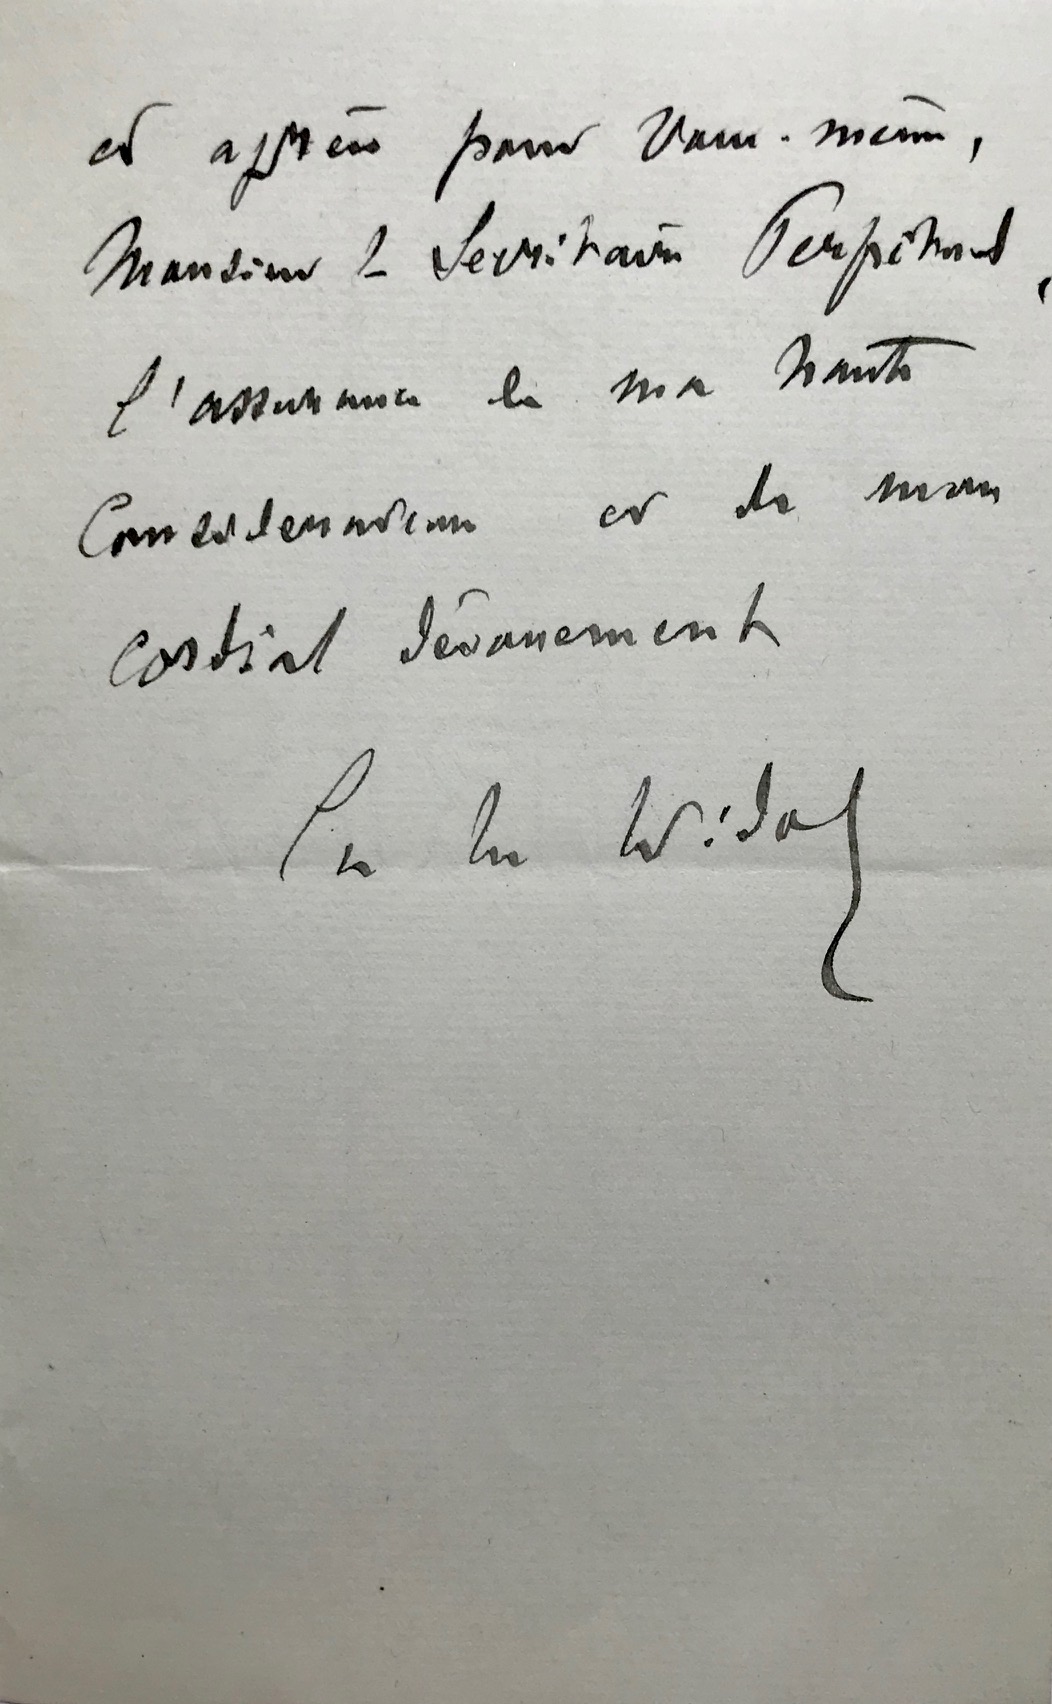 et agréer pour vous-même,
Monsieur le Secrétaire Perpétuel,
l'assurance de ma haute
considération et de mon
cordial dévouement
Ch M Widor